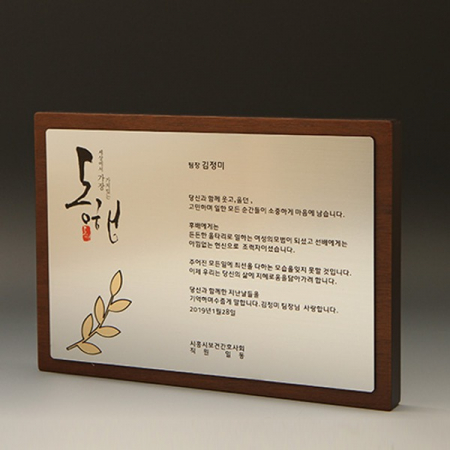 세상에서 가장 가치있는
동행
팀장 김정미
당신과 함께 웃고,울던 ,
고민하며 일한 모든 순간들이 소중하게 마음에 남습니다.
후배에게는
든든한 울타리로 일하는 여성의모범이 되셨고 선배에게는
아낌없는 헌신으로 조력자이셨습니다.
주어진 모든일에 최선을 다하는 모습을잊지 못할 것입니다.
이제 우리는 당신의 삶에 지혜로움을닮아가려 합니다.
당신과 함께한 지난날들을
기억하며수줍게 말합니다.김정미 팀장님 사랑합니다.
2019년1월28일
시흥시보건간호사회
직 원 일 동